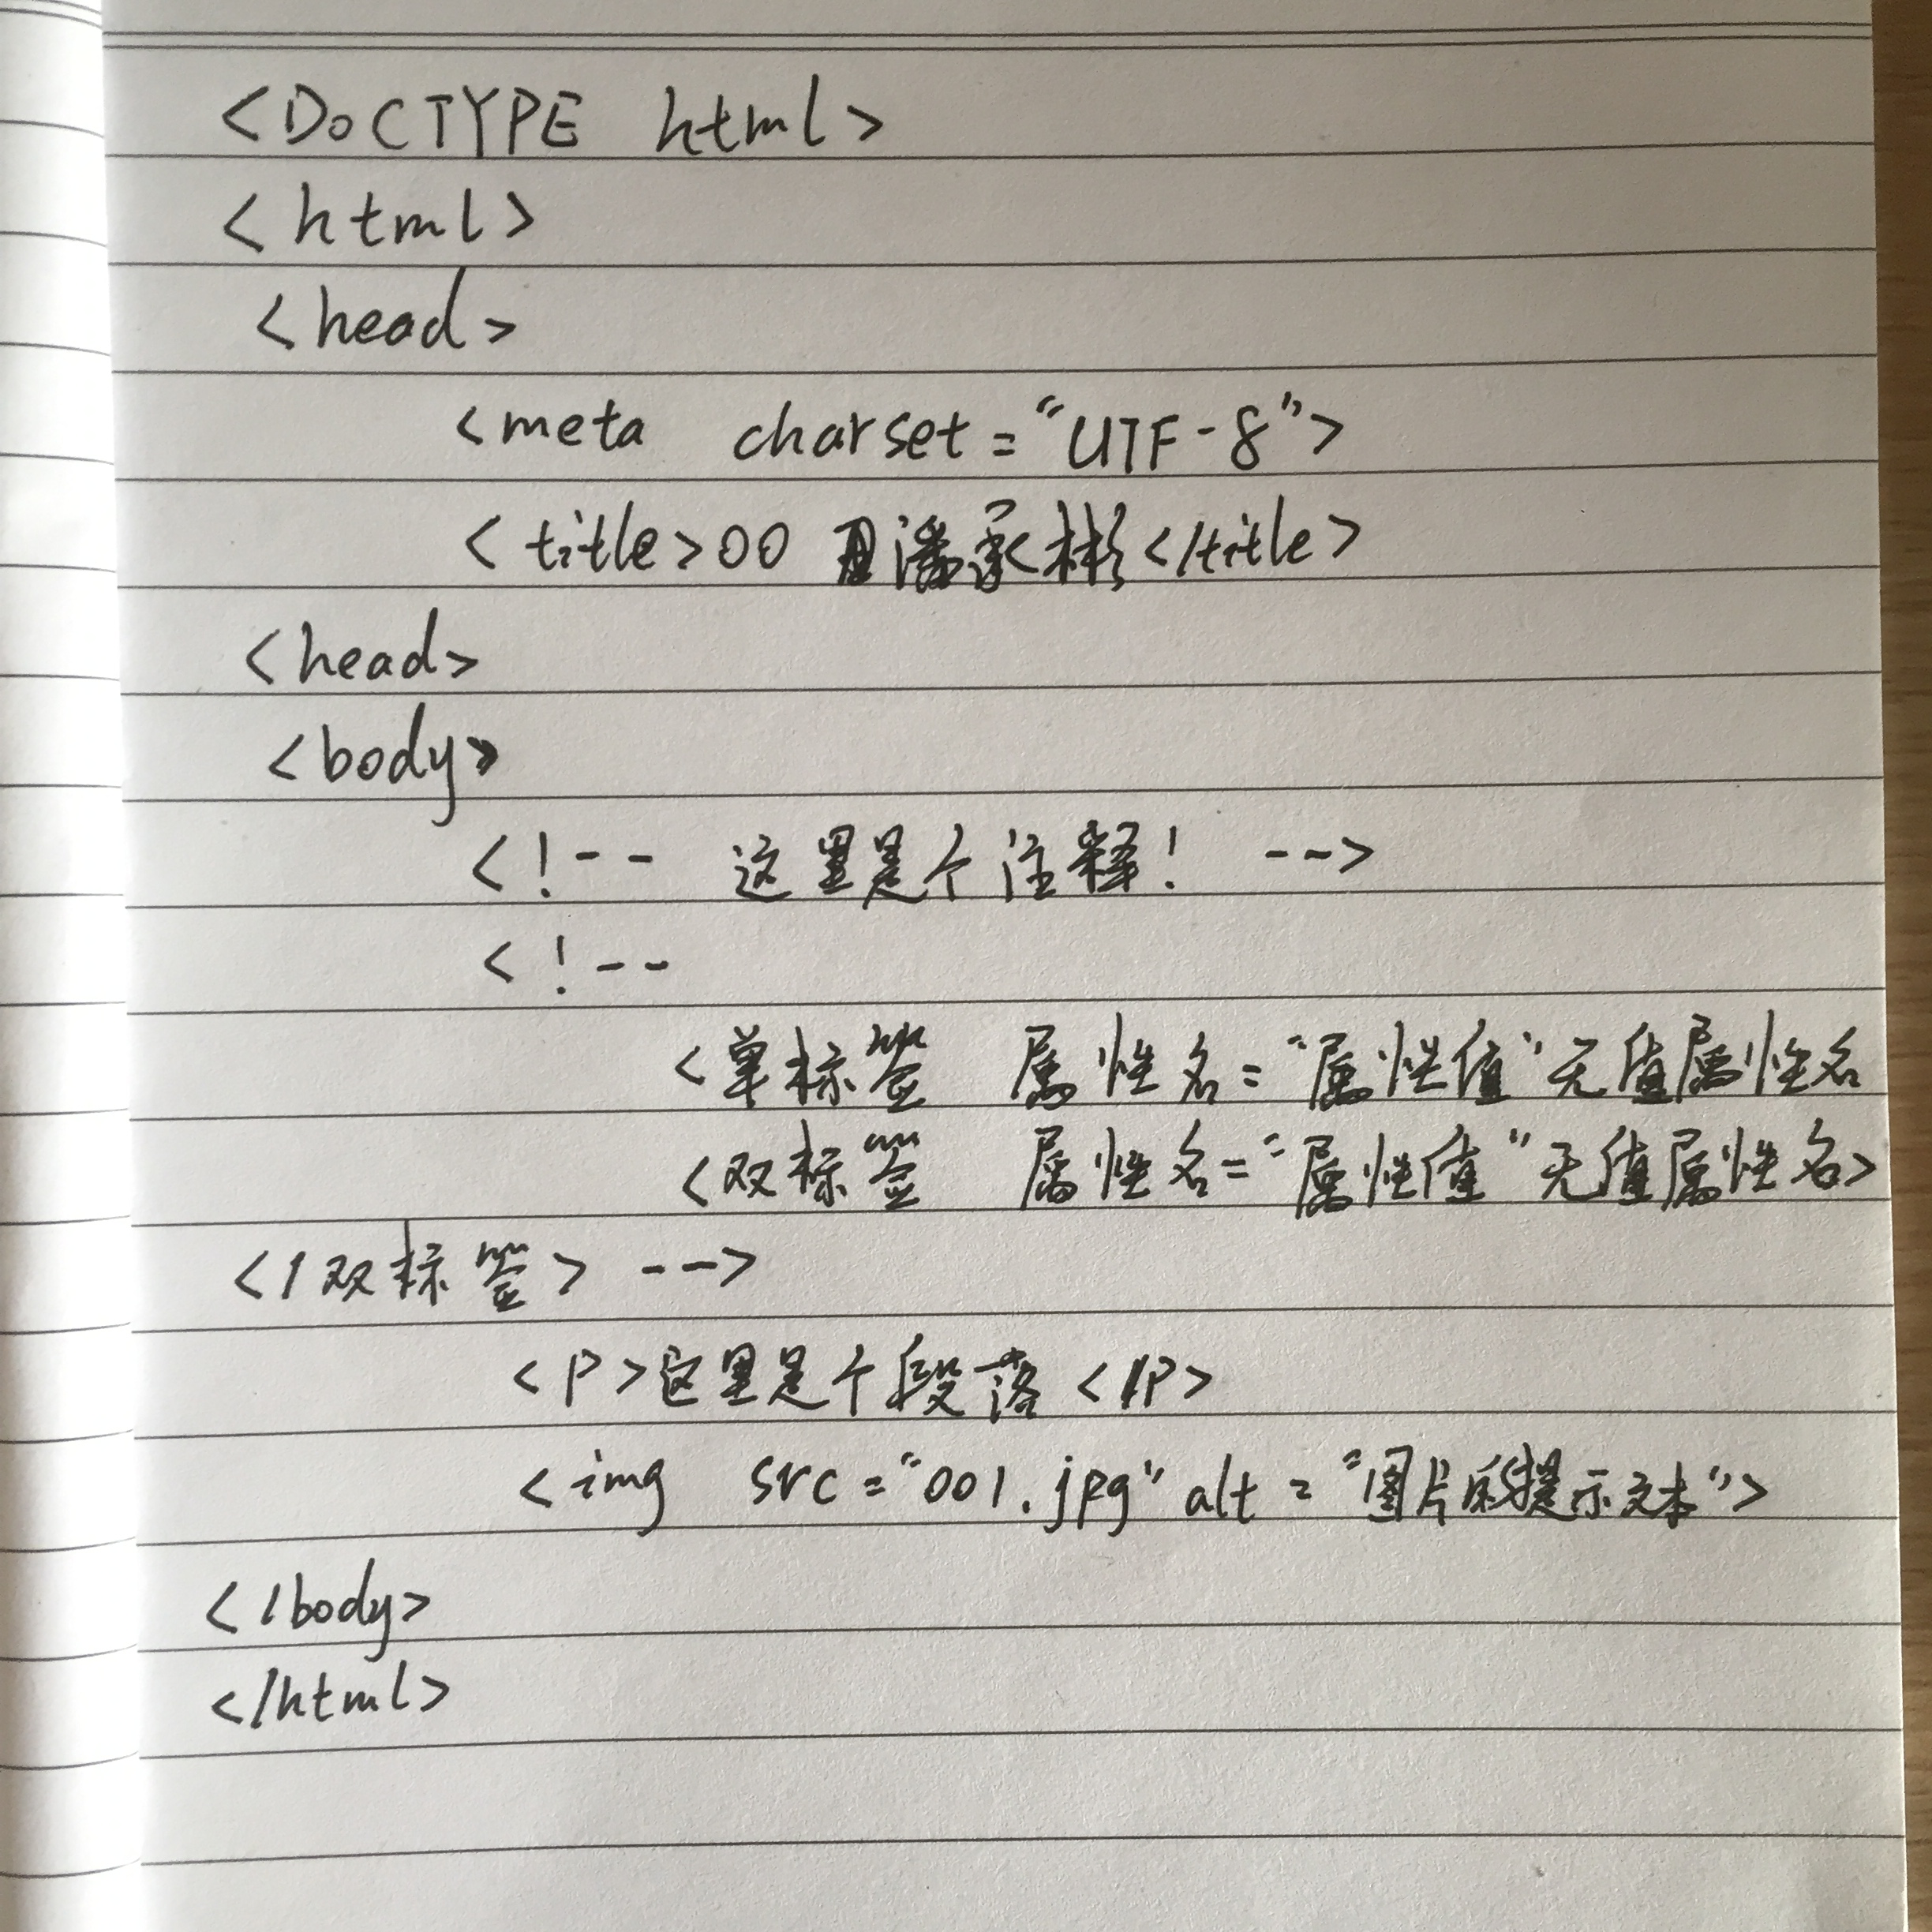 <DOCTYPE html>
<html>
<head>
<meta charset="UTF-8">
<title>00 潘承彬</title>
<head>
<body>
<!-- 这里是个注释! -->
<!--
<单标签 属性名="属性值"无值属性名
<双标签 属性名="属性值"无值属性名>
</双标签> -->
<P>这里是个段落</P>
<img src="001.jpg" alt="图片的提示文本">
</body>
</html>